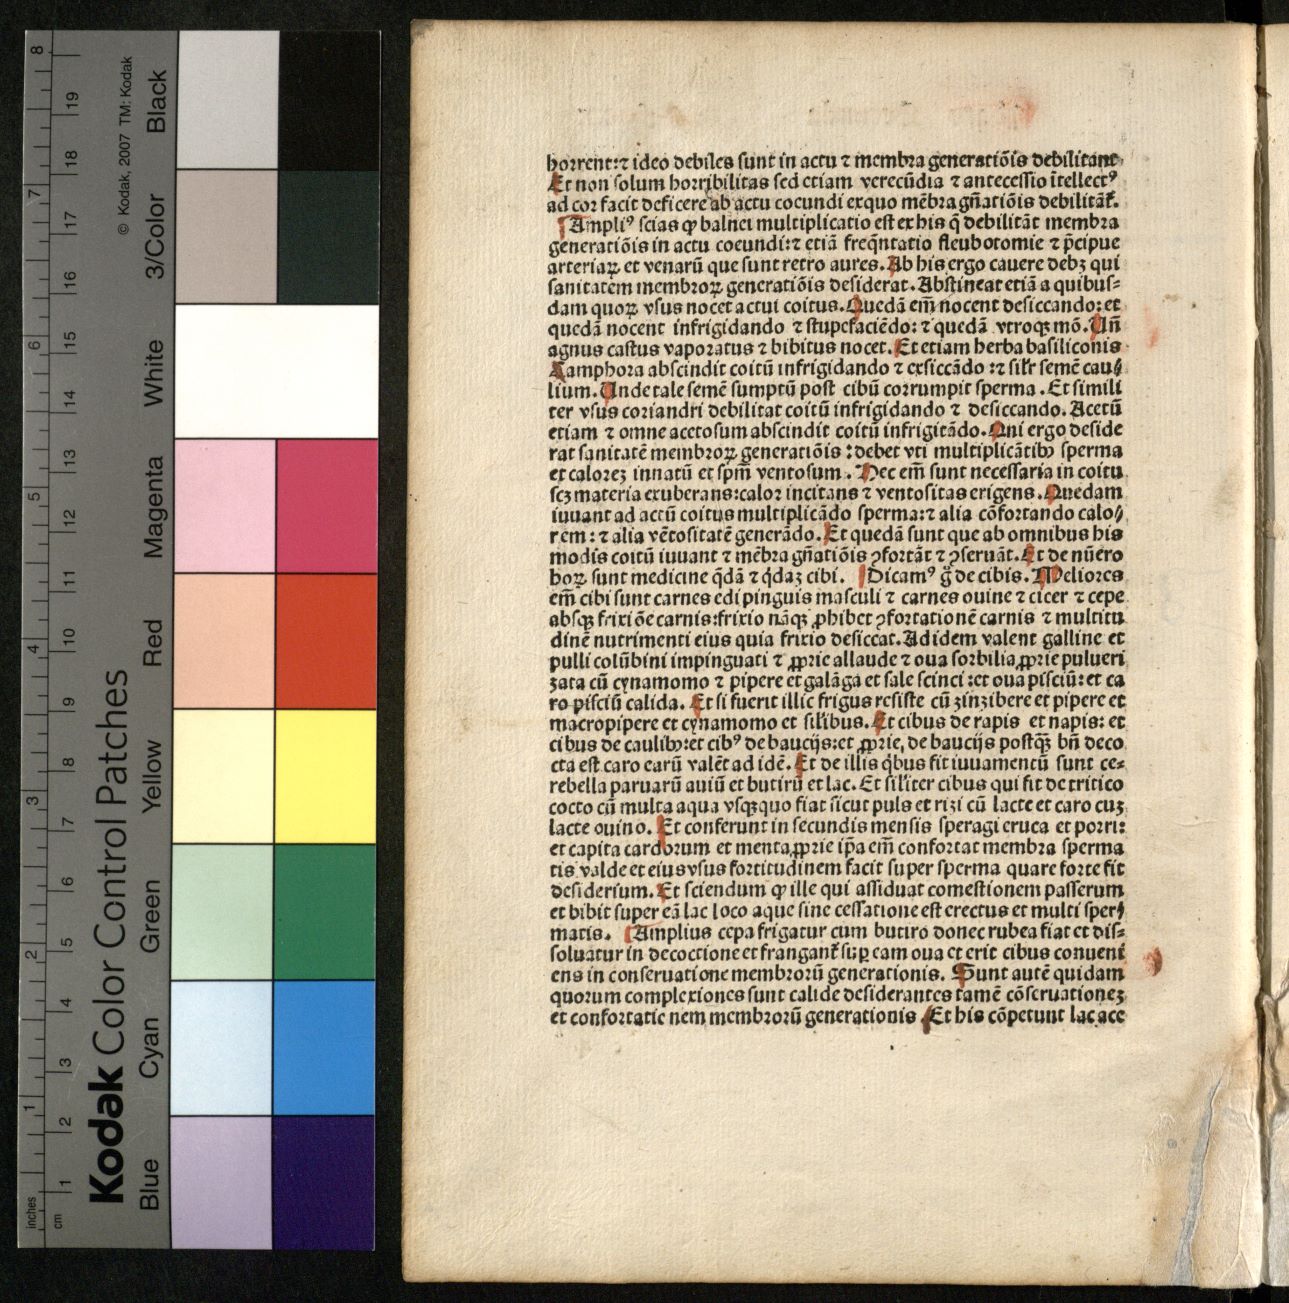 horrent:⁊ ideo debiles sunt in actu ⁊ membra generatiõis debilitant
Et non solum horribilitas sed etiam verecũdia ⁊ antecessio ĩtellectꝰ
ad cor facit deficere ab actu cocundi exquo mẽbra gñatiõis debilitãt᷑.
Ampliꝰ scias ꝙ balnei multiplicatio est ex his q̃ debilitãt membra
generatiõis in actu coeundi:⁊ etiã freq̃ntatio fleubotomie ⁊ p̃cipue
arteriaꝝ et venarũ que sunt retro aures. Ab his ergo cavere debꝫ qui
sanitatem membroꝝ generatiõis desiderat. Abstineat etiã a quibus⸗
dam quoꝝ vsus nocet actui coitus. Quedã em̃ nocent desiccando: et
quedã nocent infrigidando ⁊ stupefaciẽdo: ⁊ quedã vtroqꝫ mõ. Uñ
agnus castus vaporatus ⁊ bibitus nocet. Et etiam herba basiliconis
Camphora abscindit coitũ infrigidando ⁊ exsiccãdo :⁊ sil'r semẽ cau⸗
lium. Unde tale semẽ sumptũ post cibũ corrumpit sperma. Et simili
ter vsus coriandri debilitat coitũ infrigidando ⁊ desiccando. Acetũ
etiam ⁊ omne acetosum abscindit coitũ infrigitãdo. Qni ergo deside
rat sanitatẽ membroꝝ generatiõis : debet vti multiplicãtibꝰ sperma
et caloreꝫ innatũ et sp̃m ventosum. Hec em̃ sunt necessaria in coitu
scꝫ materia exuberans: calor incitans ⁊ ventositas erigens. Quedam
iuuant ad actũ coitus multiplicãdo sperma:⁊ alia cõfortando calo⸗
rem: ⁊ alia vẽtositatẽ generãdo. Et quedã sunt que ab omnibus his
modis coitũ iuuant ⁊ mẽbra gñatiõis ꝯfortãt ⁊ ꝯseruãt. Et de nũero
hoꝝ sunt medicine q̃dã ⁊ q̃daꝫ cibi. Dicamꝰ g̃ de cibis. Meliores
em̃ cibi sunt carnes edi pinguis masculi ⁊ carnes ouine ⁊ cicer ⁊ cepe
absqꝫ frixiõe carnis: frixio nãqꝫ ꝓhibet ꝯfortationẽ carnis ⁊ multitu
dinẽ nutrimenti eius quia frixio desiccat. Ad idem valent galline et
pulli colũbini impinguati ⁊ ꝓprie allaude ⁊ oua sorbilia ꝓprie pulueri
zata cũ cynamomo ⁊ pipere et galãga et sale scinci :et oua pisciũ: et ca
ro pisciũ calida. Et si fuerit illic frigus resiste cũ zinzibere et pipere et
macropipere et cynamomo et sil'ibus. Et cibus de rapis et napis: et
cibus de caulibꝰ: et cibꝰ de baucijs: et ꝓprie, de baucijs postq̃ꝫ bñ deco
cta est caro earũ valẽt ad idẽ. Et de illis q̃bus fit iuuamentũ sunt ce⸗
rebella paruarũ auiũ et butirũ et lac. Et sil'iter cibus qui fit de tritico
cocto cũ multa aqua vsqꝫquo fiat sicut puls et rizi cũ lacte et caro cuꝫ
lacte ouino. Et conferunt in secundis mensis speragi eruca et porri:
et capita cardorum et menta ꝓprie ip̃a em̃ confortat membra sperma
tis valde et eius vsus fortitudinem facit super sperma quare forte fit
desiderium. Et sciendum ꝙ ille qui assiduat comestionem passerum
et bibit super eã lac loco aque sine cessatione est erectus et multi sper⸗
matis. Amplius cepa frigatur cum butiro donec rubea fiat et dis⸗
soluatur in decoctione et frangant᷑ suꝑ eam oua et erit cibus conueni
ens in conseruatione membrorũ generationis. Sunt autẽ quidam
quorum complexiones sunt calide desiderantes tamẽ cõseruationeꝫ
et confortatic nem membrorũ generationis. Et his cõpetunt lac ace
Kodak Color Control Patches
© Kodak, 2007 TM: Kodak
Blue Cyan Green Yellow Red Magenta White 3/Color Black
inches 1 2 3 4 5 6 7 8
cm 1 2 3 4 5 6 7 8 9 10 11 12 13 14 15 16 17 18 19